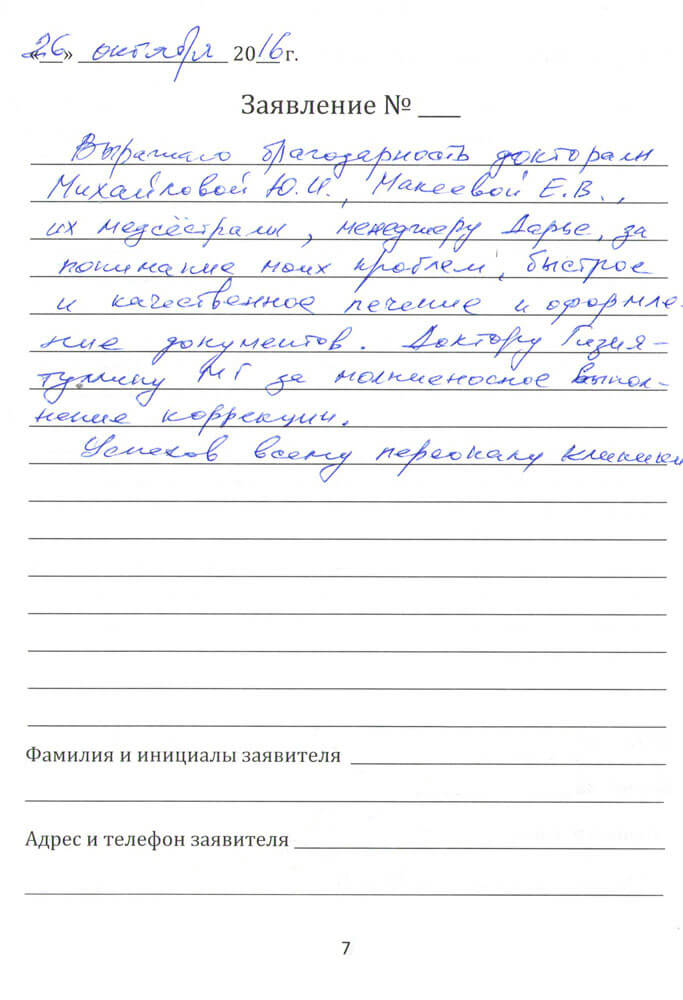 «26» октября 2016 г.
Заявление № ___
Выражаю благодарность докторам
Михайловой Ю.И., Макеевой Е.В.,
их медсёстрам, менеджеру Дарье, за
понимание моих проблем, быстрое
и качественное лечение и оформле-
ние документов. Доктору Гизя-
туллину МГ за молниеносное выпол-
нение коррекции.
Успехов всему персоналу клиники
Фамилия и инициалы заявителя
Адрес и телефон заявителя
7